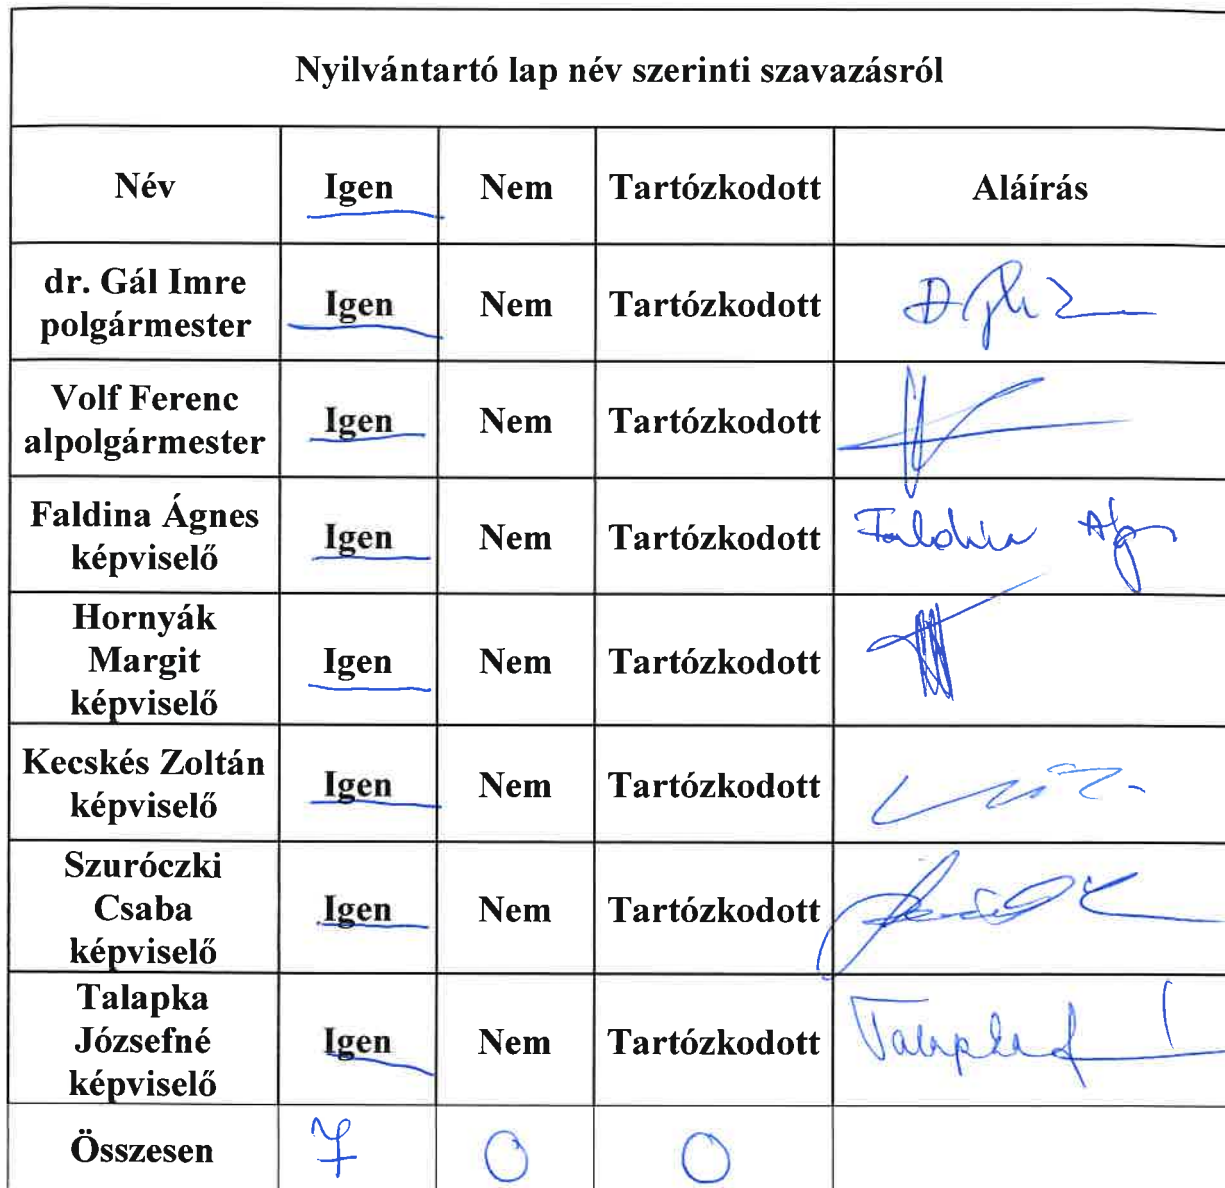 Nyilvántartó lap név szerinti szavazásról
Név Igen Nem Tartózkodott Aláírás
dr. Gál Imre
polgármester
Igen Nem Tartózkodott
Volf Ferenc
alpolgármester
Igen Nem Tartózkodott
Faldina Ágnes
képviselő
Igen Nem Tartózkodott
Hornyák
Margit
képviselő
Igen Nem Tartózkodott
Kecskés Zoltán
képviselő
Igen Nem Tartózkodott
Szuróczki
Csaba
képviselő
Igen Nem Tartózkodott
Talapka
Józsefné
képviselő
Igen Nem Tartózkodott
Összesen 7 0 0